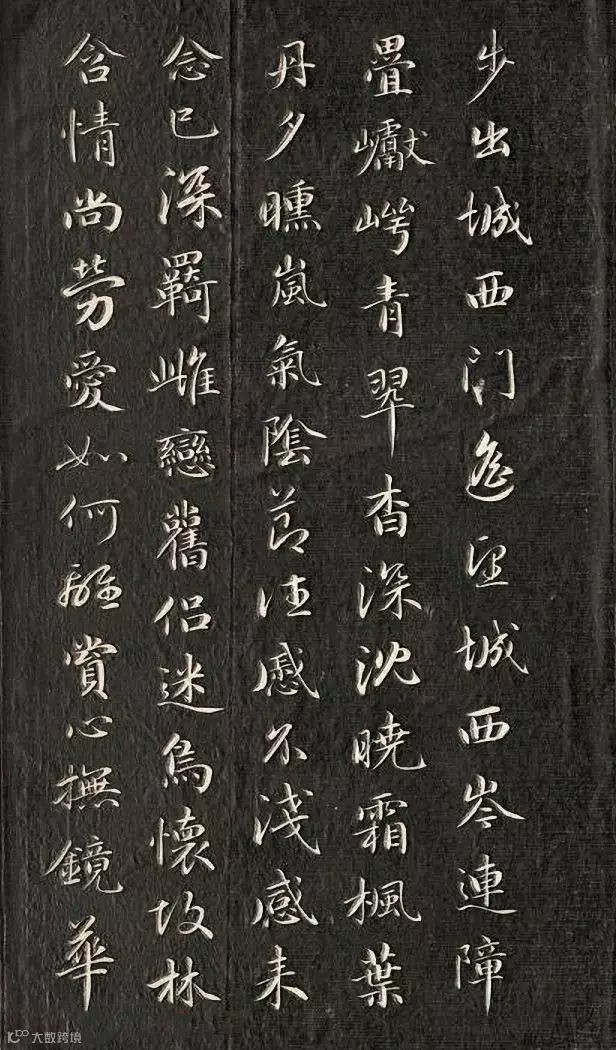 步出城西门遙望城西岑連障
疊巘崿青翠杳深沈曉霜楓葉
丹夕曛嵐氣陰節往慼不淺感来
念已深羇雌戀舊侣迷鳥懷故林
含情尚勞愛如何離賞心撫鏡華
大数跨境